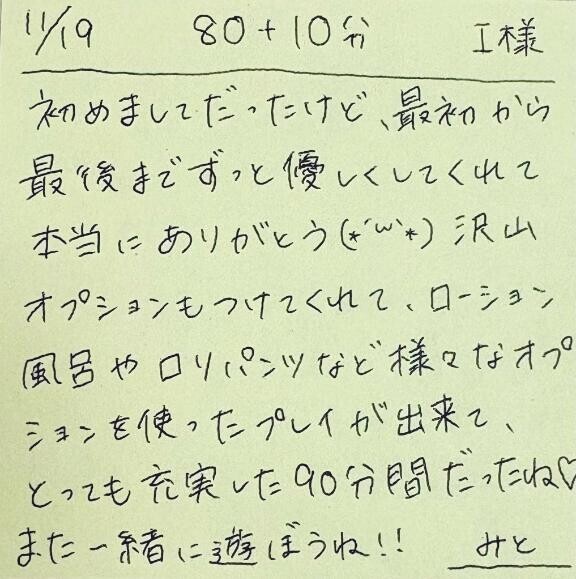 11/19 80+10分 I様
初めましてだったけど、最初から
最後までずっと優しくしてくれて
本当にありがとう(*´ω`*)沢山
オプションもつけてくれて、ローション
風呂やロリパンツなど様々なオプ
ションを使ったプレイが出来て、
とっても充実した90分間だったね♡
また一緒に遊ぼうね!!　みと